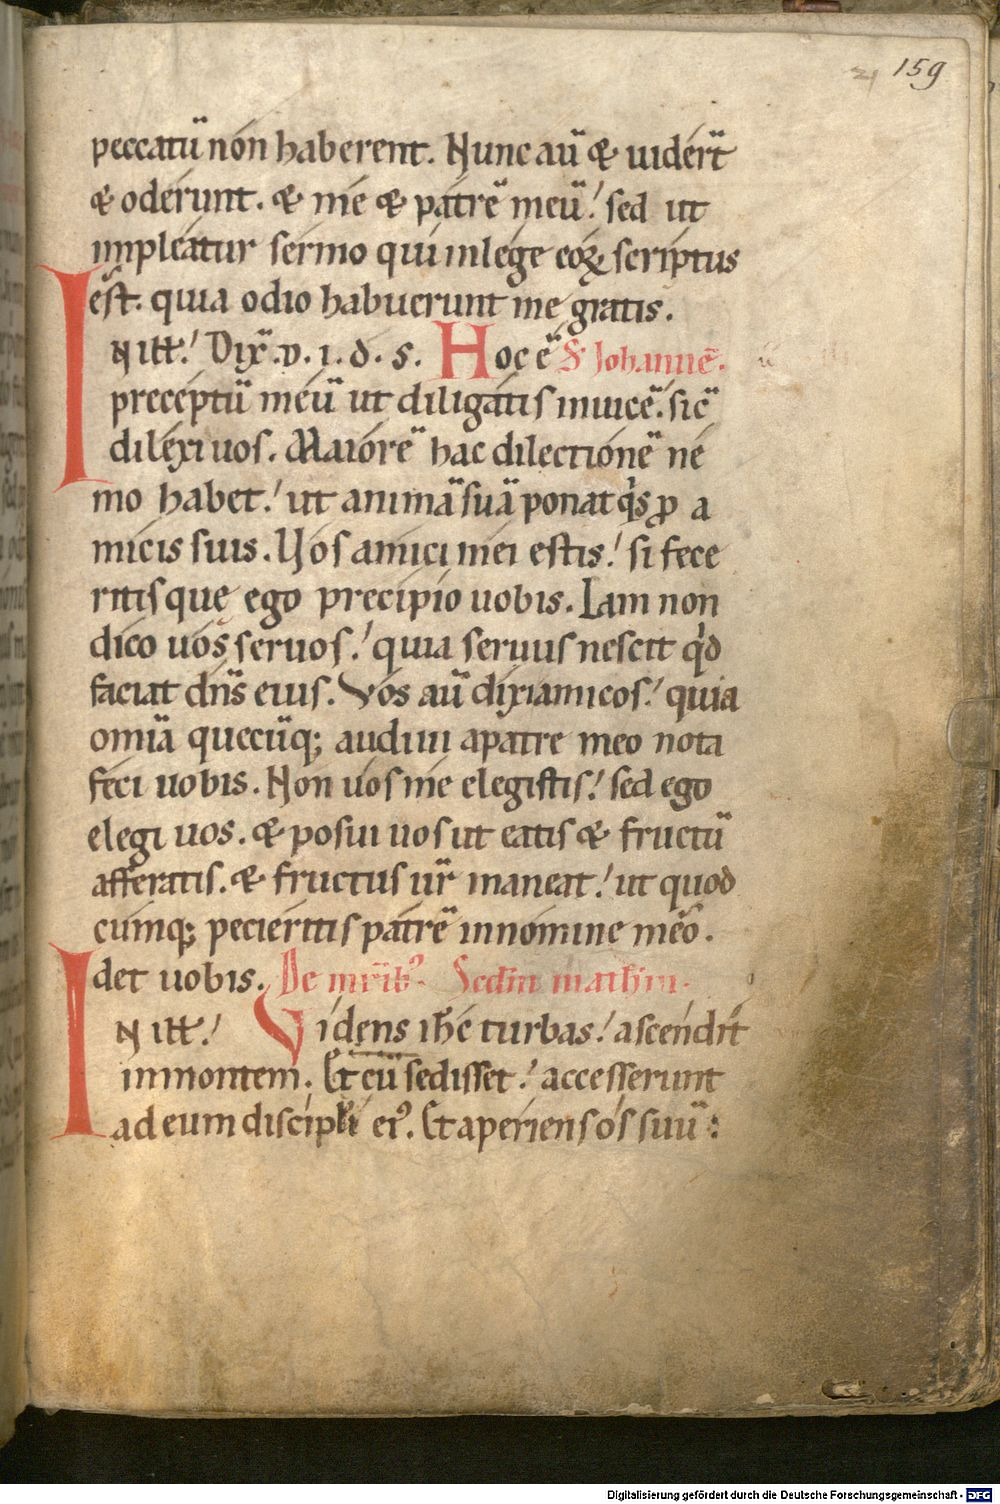 159
peccatū non haberent. Nunc aū & uider̄t
& oderunt. & me & patrē meū! sed ut
impleatur sermo qui in lege eoꝝ scriptus
est. quia odio habuerunt me gratis.
IN ill̄! Dix̄. d. i. d. s. Hoc ē S. Iohannē.
preceptū meū ut diligatis inuicē. sic̄
dilexi uos. Maiorē hac dilectionē ne
mo habet! ut animā suā ponat qis ꝓ a
micis suis. Uos amici mei estis! si fece
ritis quę ego precipio uobis. Iam non
dico uos seruos! quia seruus nescit qd
faciat dn̄s eius. Vos aū dixi amicos! quia
omīa quecūq; audiui a patre meo nota
feci uobis. Non uos me elegistis! sed ego
elegi uos. & posui uos ut eatis & fructū
afferatis. & fructus ur̄ maneat! ut quod
cumq; pecieritis patrē in nomine meo.
det uobis. De mr̄ib9. Scd̄m mathm̄.
IN ill̄! Videns ihc̄ turbas! ascendit
in montem. Et cū sedisset! accesserunt
ad eum discipli ei9. Et aperiens os suū:
Digitalisierung gefördert durch die Deutsche Forschungsgemeinschaft - DFG